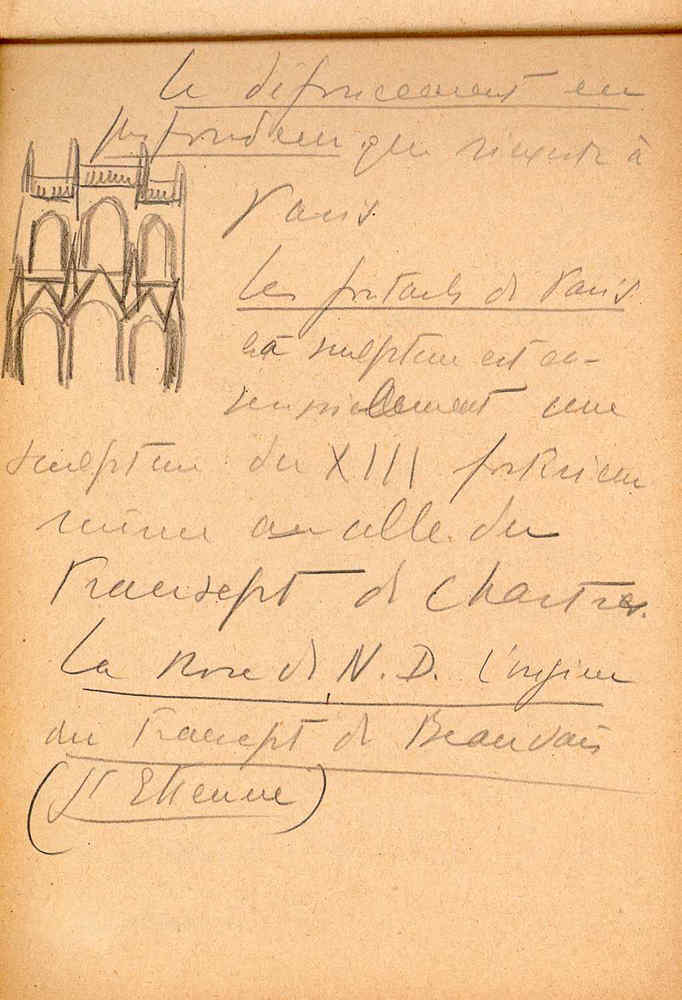 Le défoncement en
profondeur que n'existe à
Paris.
Les portails de Paris
La sculpture est es-
sentiellement une
sculpture du XIII postérieure
même a celle du
Transept de Chartres.
La Rose de N. D. l'origine
au transept de Beauvais
(St Etienne)